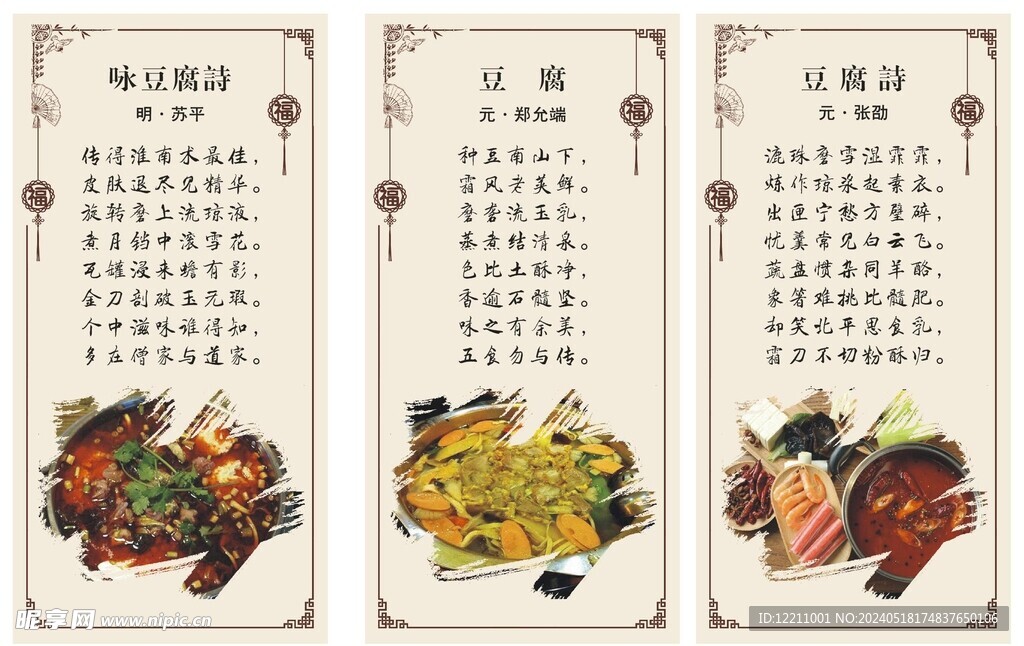 咏豆腐詩
明·苏平
传得淮南术最佳，
皮肤退尽见精华。
旋转磨上流琼液，
煮月铛中滚雪花。
瓦罐浸来蟾有影，
金刀剖破玉无瑕。
个中滋味谁得知，
多在僧家与道家。
福
福
豆 腐
元·郑允端
种豆南山下，
霜风老荚鲜。
磨砻流玉乳，
蒸煮结清泉。
色比土酥净，
香逾石髓坚。
味之有余美，
五食勿与传。
福
福
豆腐詩
元·张劭
漉珠磨雪湿霏霏，
炼作琼浆起素衣。
出匣宁愁方璧碎，
忧羹常见白云飞。
蔬盘惯杂同羊酪，
象箸难挑比髓肥。
却笑北平思食乳，
霜刀不切粉酥归。
福
福
昵享网 www.nipic.cn
ID:12211001 NO:20240518174837650106